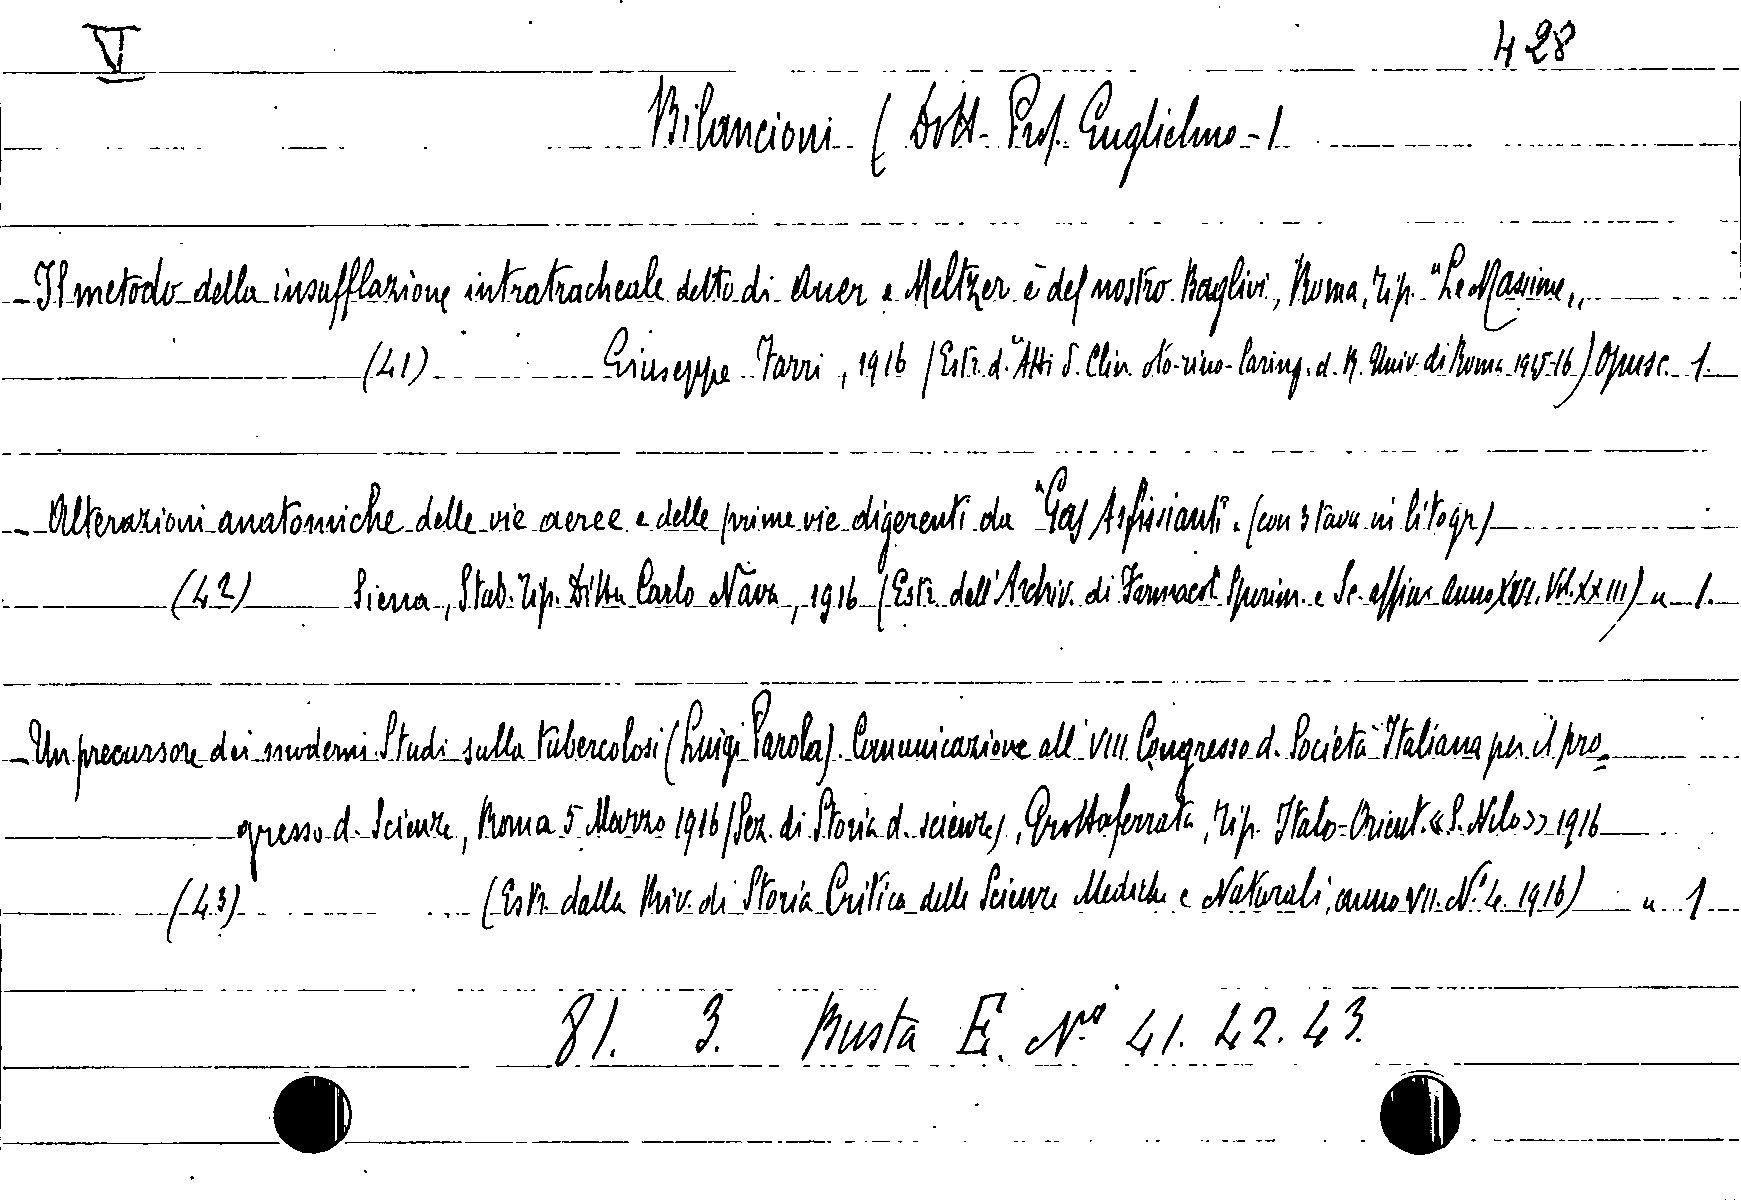 V 428
Bilancioni ( Dott. Prof. Guglielmo - )
- Il metodo della insufflazione intratracheale detto di Auer e Meltzer è del nostro Baglivi, Roma, Tip. "Le Massime„
(41) Giuseppe Farri, 1916 (Estr. d. "Atti d. Clin. oto-rino-laring. d. R. Univ. di Roma 1915-16) Opusc. 1.
- Alterazioni anatomiche delle vie aeree e delle prime vie digerenti da "Gas Asfissianti". (con 3 tavv in litogr)
(42) Siena, Stab. Tip. Ditta Carlo Nava, 1916 (Estr. dell'Archiv. di Farmacol Sperim. e Sc. affini Anno XVI. Vol. XXIII) " 1.
- Un precursore dei moderni Studi sulla tubercolosi (Luigi Parola). Comunicazione all' VIII Congresso d. Società Italiana per il pro=
gresso d. Scienze, Roma 5 Marzo 1916 (Sez. di Storia d. scienze), Grottaferrata, Tip. Italo-Orient. «S. Nilo» 1916
(43) (Estr. dalla Riv. di Storia Critica delle Scienze Mediche e Naturali, anno VII. N.° 4. 1916) " 1
81. 3. Busta E. N.° 41. 42. 43.